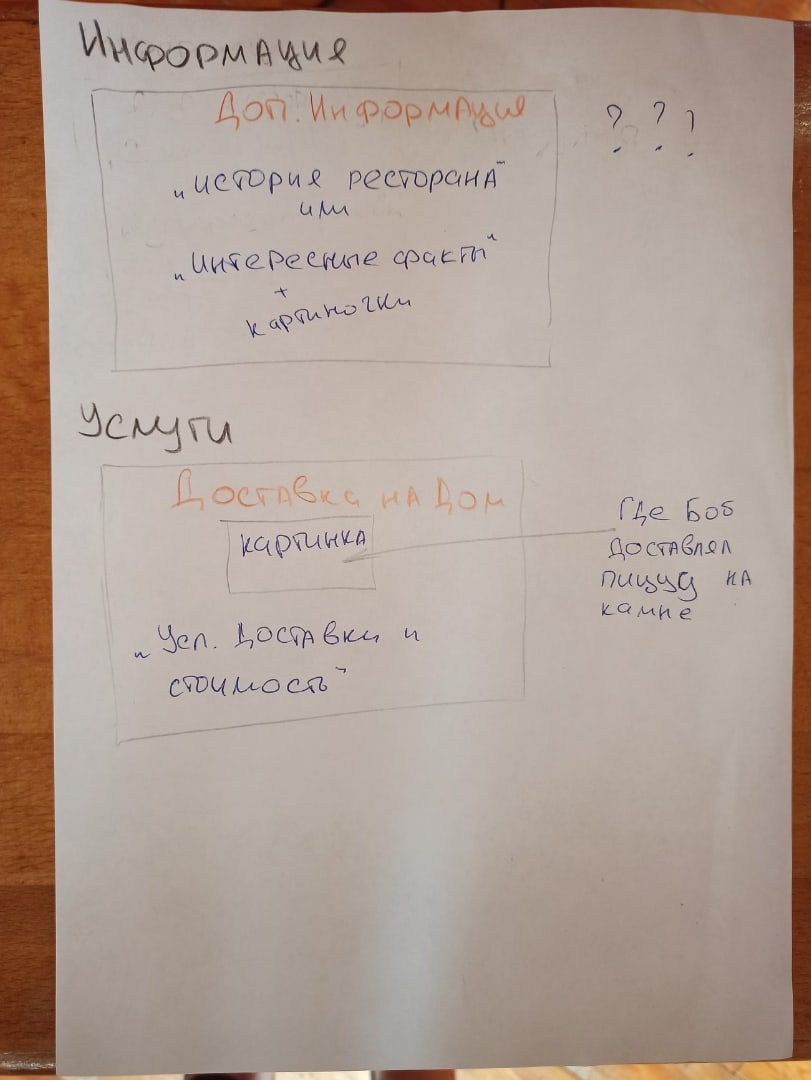 Информация
Доп. Информация
? ? ?
„история ресторана"
или
„Интересные факты"
+
картиночки
Услуги
Доставка на Дом
картинка
Где Боб
доставлял
пиццу на
камне
„Усл. Доставки и
стоимость"